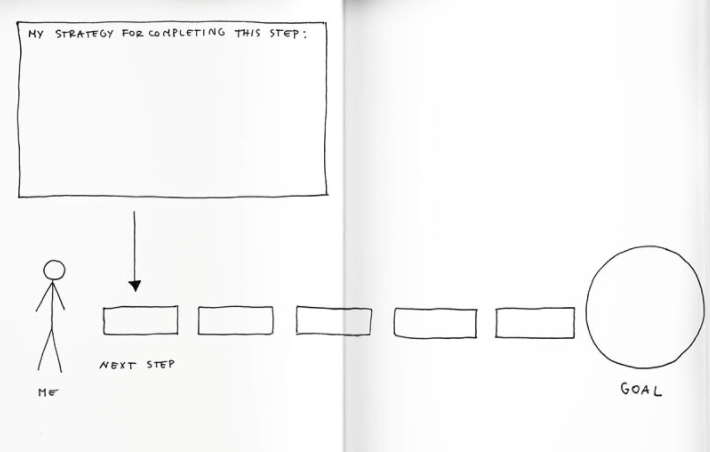 MY STRATEGY FOR COMPLETING THIS STEP:
NEXT STEP
ME
GOAL